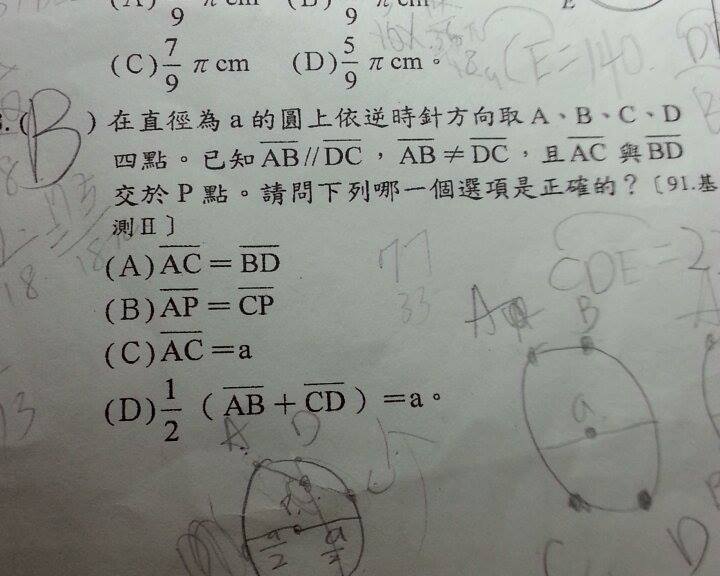 (C) 7/9 π cm (D) 5/9 π cm。
CE=140
(B) 在直徑為 a 的圓上依逆時針方向取 A、B、C、D
四點。已知 AB // DC，AB ≠ DC，且 AC 與 BD
交於 P 點。請問下列哪一個選項是正確的？〔91.基
測Ⅱ〕
(A) AC = BD
(B) AP = CP
(C) AC = a
(D) 1/2 ( AB + CD ) = a。
77
33
CDE=2
A B
a
A D
a/2 a/2
C D